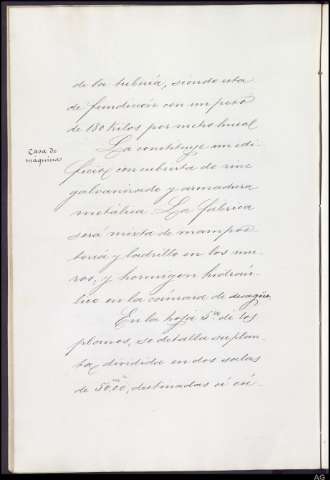 de la tubería, siendo esta
de fundición con un peso
de 180 kilos por metro lineal
Casa de
maquinas
La constituye un edi-
ficio con cubierta de zinc
galvanizado y armadura
metálica. La fábrica
será mixta de mampos-
teria y ladrillo en los mu-
ros, y hormigon hidrau-
lico en la cámara de desagüe.
En la hoja 5ª de los
planos, se detalla su plan-
ta, dividida en dos salas
de destinadas á cá-
AG